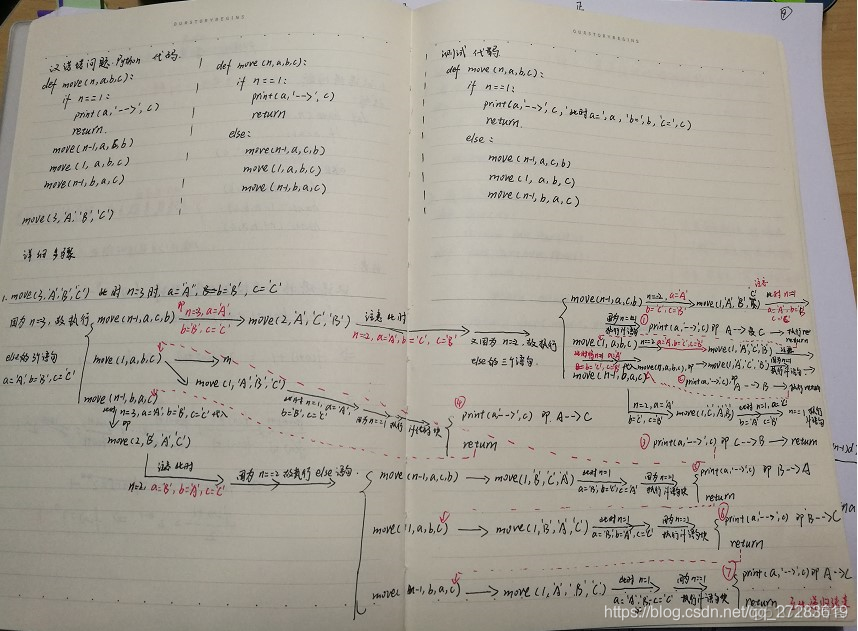 QUESTORYREGINS
汉诺塔问题. Python 代码.
def move(n,a,b,c):
if n==1:
print(a,'-->', c)
return.
move(n-1,a,c,b)
move(1, a,b,c)
move(n-1,b,a,c)
move(3,'A','B','C')
详细步骤
def move(n,a,b,c):
if n==1:
print(a,'-->', c)
return
else:
move(n-1,a,c,b)
move(1,a,b,c)
move(n-1,b,a,c)
QUESTORYREGINS
测试代码
def move(n,a,b,c):
if n==1:
print(a,'-->', c, '此时a=', a, 'b=', b, 'c=', c)
return.
else:
move(n-1,a,c,b)
move(1, a,b,c)
move(n-1,b,a,c)
1. move(3,'A','B','C') 此时 n=3时, a='A', b='B', c='C'
因为 n=3, 故执行
else的3个语句
a='A', b='B', c='C'
move(n-1,a,c,b) 即 n=3, a='A' b='B', c='C' move(2,'A','C','B') 注意此时 n=2, a='A', b='C', c='B' 又因为 n=2, 故执行
else的三个语句.
move(1,a,b,c)
move(1,'A','B','C') 此时 n=1, a='A', b='B', c='C' 因为n==1 执行
④ print(a,'-->',c) 即 A-->C
return
move(n-1,b,a,c)
n=3, a='A', b='B', c='C' 代入
即
move(2,'B','A','C')
注意此时
n=2, a='B', b='A', c='C'
因为 n==2 故执行 else语句.
move(n-1,a,c,b) n=2, a='A' b='C', c='B' move(1,'A','B','C') 此时 n=1
① print(a,'-->',c) 即 A-->C
return
move(1,a,b,c) n=2 a='A', b='C', c='B' move(1,'A','C','B')
② print(a,'-->',c) 即 A-->B 执行return
move(n-1,b,a,c)
n=2, a='A' b='C', c='B' move(1,'C','A','B') 此时 n=1, a='C' b='A' c='B' n==1 执行
③ print(a,'-->',c) 即 C-->B return
move(n-1,a,c,b) move(1,'B','C','A') 此时 n=1 a='B', b='C', c='A' 因为 n==1 执行if语句块
⑤ print(a,'-->',c) 即 B-->A
return
move(1,a,b,c) move(1,'B','A','C') 此时 n=1 a='B', b='A', c='C' 因为 n==1 执行if语句块
⑥ print(a,'-->',c) 即 B-->C
return
move(n-1,b,a,c) move(1,'A','B','C') 此时 n=1 a='A', b='B', c='C' 因为 n==1 执行if语句块
⑦ print(a,'-->',c) 即 A-->C
return
https://blog.csdn.net/qq_27283619